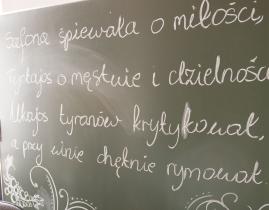 Safona śpiewała o miłości,
Tyrtajos o męstwie i dzielności
Alkajos tyranów krytykował,
a przy winie chętnie rymował.